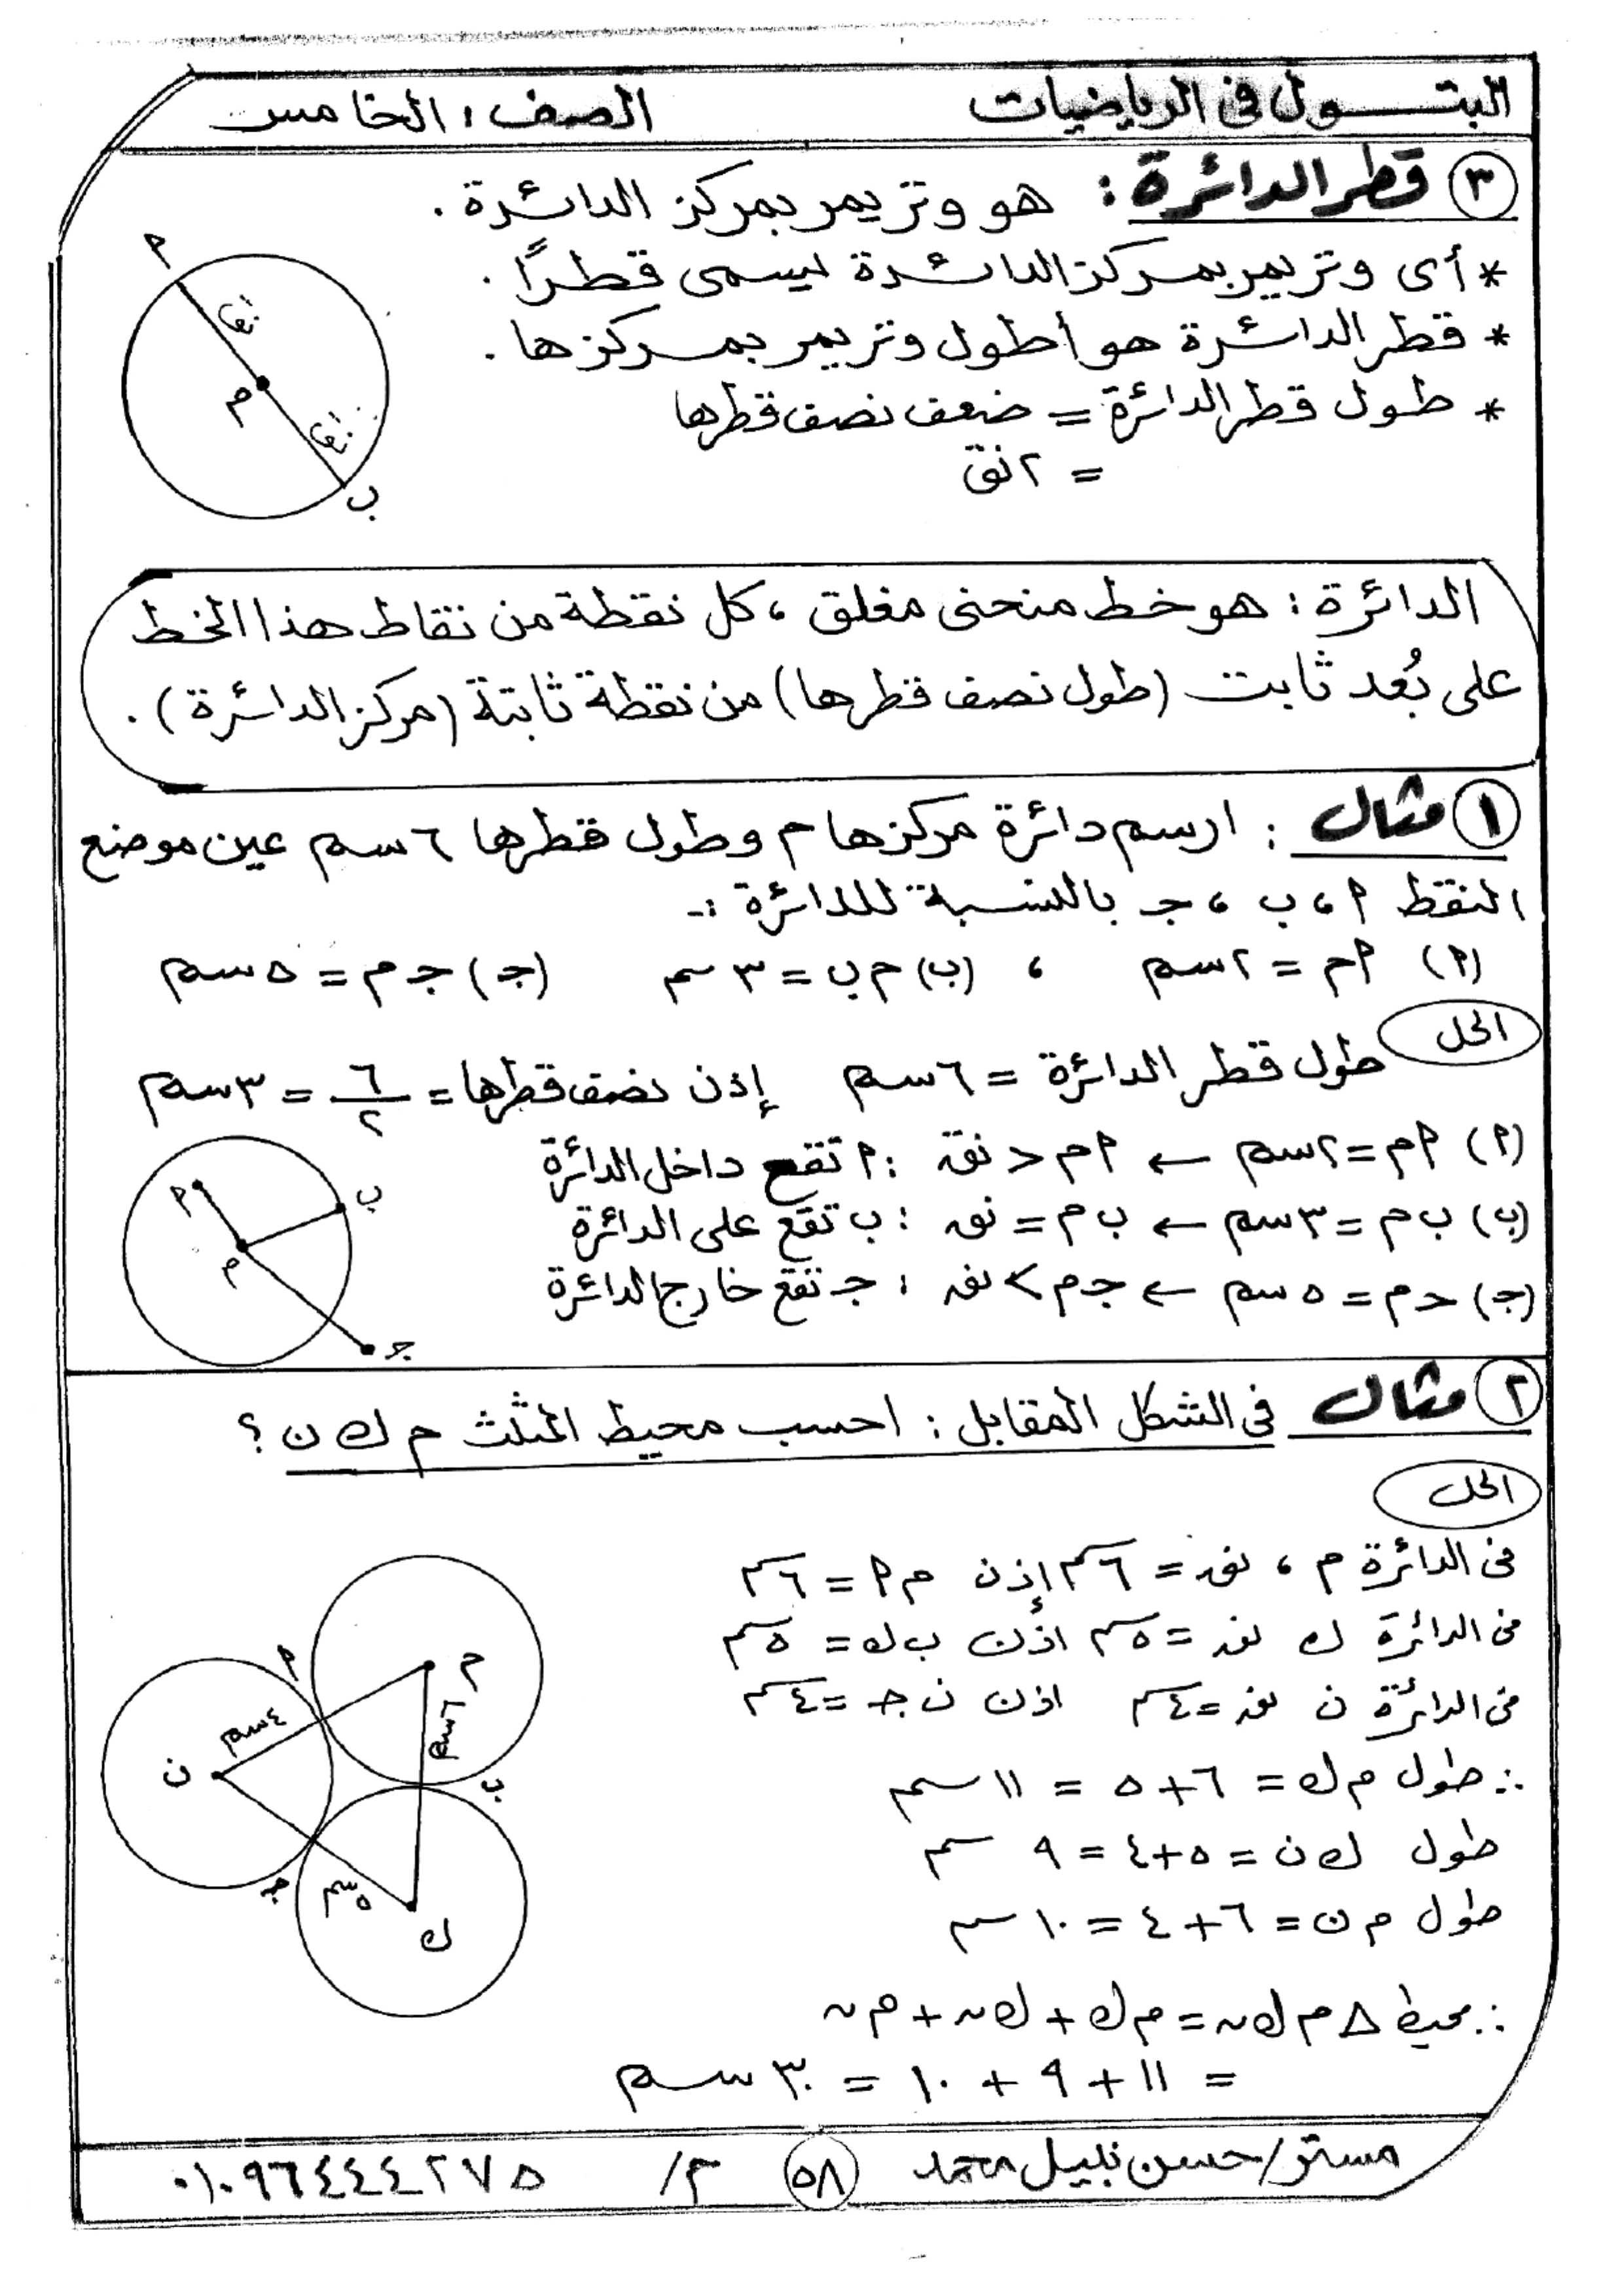 البتول فى الرياضيات
الصف : الخامس
٣ قطر الدائرة : هو وتر يمر بمركز الدائرة .
* أى وتر يمر بمركز الدائرة ليسمى قطرًا .
* قطر الدائرة هو أطول وتر يمر بمركزها .
* طول قطر الدائرة = ضعف نصف قطرها
= ٢ نق
م
نق
م
نق
ب
الدائرة : هو خط منحنى مغلق ، كل نقطة من نقاط هذا الخط
على بُعد ثابت (طول نصف قطرها) من نقطة ثابتة (مركز الدائرة) .
١ مثال : ارسم دائرة مركزها م وطول قطرها ٦ سم عين موضع
النقط أ ، ب ، جـ بالنسبة للدائرة :-
(أ) أم = ٢ سم ، (ب) م ب = ٣ سم (جـ) جـ م = ٥ سم
الحل
طول قطر الدائرة = ٦ سم إذن نصف قطرها = ٦/٢ = ٣ سم
(أ) أم = ٢ سم ← أم < نق : أ تقع داخل الدائرة
(ب) ب م = ٣ سم ← ب م = نق : ب تقع على الدائرة
(جـ) حـ م = ٥ سم ← جـ م > نق : جـ تقع خارج الدائرة
أ
ب
م
جـ
٢ مثال فى الشكل المقابل : احسب محيط المثلث م ك ن ؟
الحل
فى الدائرة م ، نق = ٦ سم إذن م أ = ٦ سم
فى الدائرة ك نق = ٥ سم اذن ب ك = ٥ سم
فى الدائرة ن نق = ٤ سم اذن ن جـ = ٤ سم
∴ طول م ك = ٦ + ٥ = ١١ سم
طول ك ن = ٥ + ٤ = ٩ سم
طول م ن = ٦ + ٤ = ١٠ سم
∴ محيط Δ م ك ن = م ك + ك ن + م ن
= ١١ + ٩ + ١٠ = ٣٠ سم
أ
م
٤ سم
٦ سم
ن
ب
جـ
٥ سم
ك
مستر / حسن نبيل محمد
٥٨
م / ٠١٠٩٦٤٤٤٢٧٥